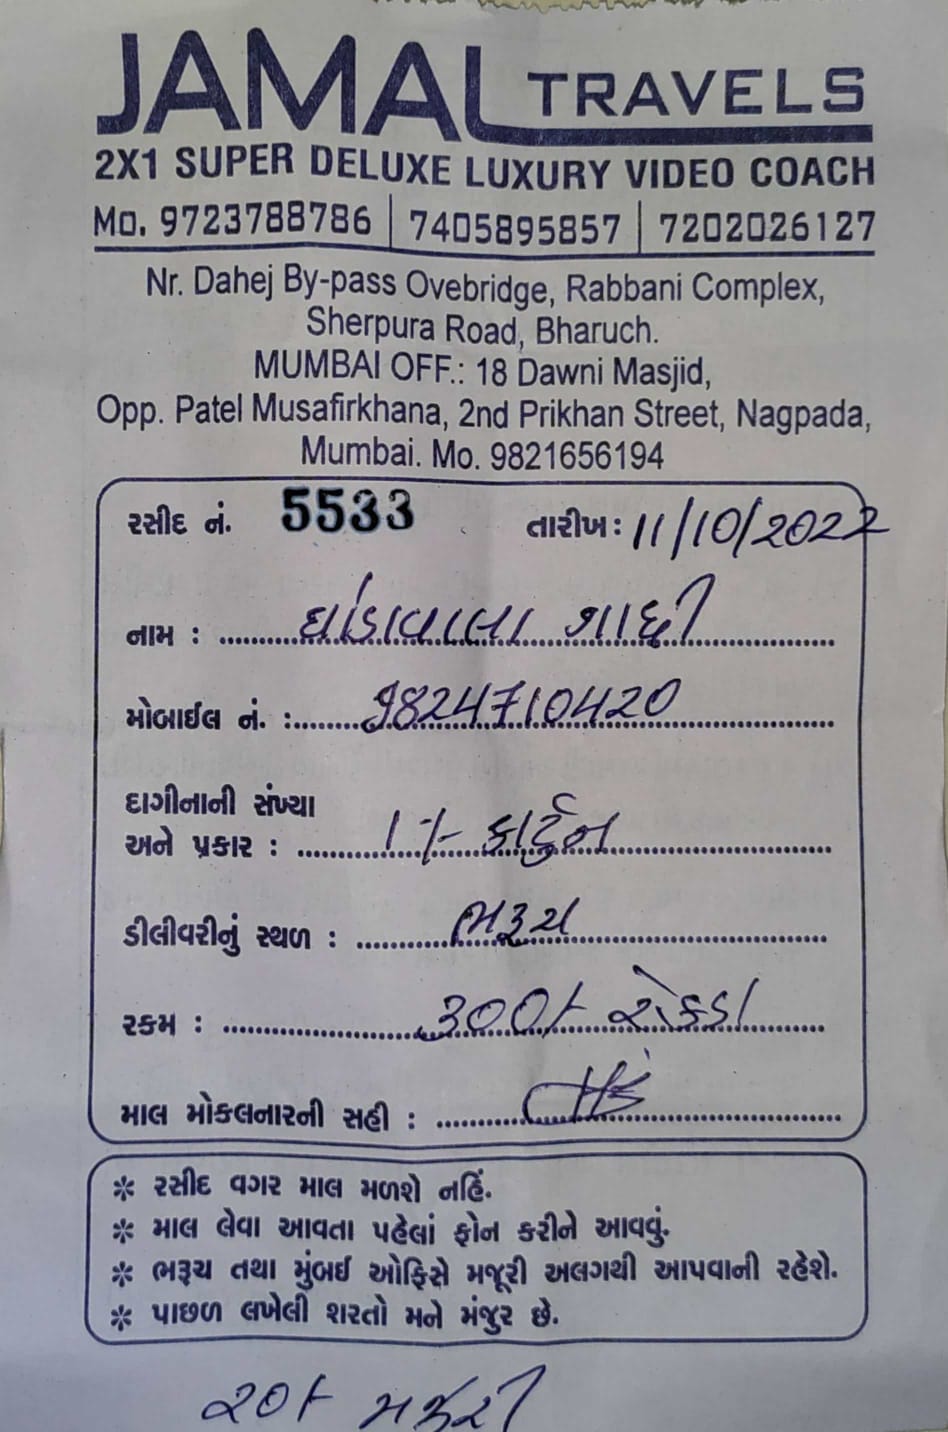 JAMAL TRAVELS
2X1 SUPER DELUXE LUXURY VIDEO COACH
Mo. 9723788786 | 7405895857 | 7202026127
Nr. Dahej By-pass Ovebridge, Rabbani Complex,
Sherpura Road, Bharuch.
MUMBAI OFF.: 18 Dawni Masjid,
Opp. Patel Musafirkhana, 2nd Prikhan Street, Nagpada,
Mumbai. Mo. 9821656194
રસીદ નં. 5533 તારીખ: 11/10/2022
નામ :
મોબાઈલ નં. : 9824710420
દાગીનાની સંખ્યા
અને પ્રકાર : 1/- કાર્ટુન
ડીલીવરીનું સ્થળ : ભરૂચ
રકમ : ૩૦૦/- રોકડા
માલ મોકલનારની સહી :
* રસીદ વગર માલ મળશે નહિં.
* માલ લેવા આવતા પહેલાં ફોન કરીને આવવું.
* ભરૂચ તથા મુંબઈ ઓફિસે મજૂરી અલગથી આપવાની રહેશે.
* પાછળ લખેલી શરતો મને મંજુર છે.
૨૦/- મજુરી